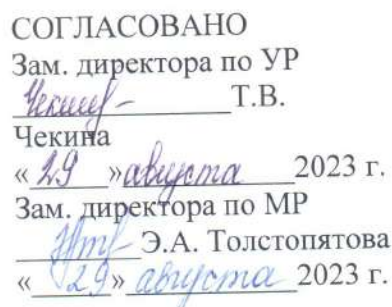 СОГЛАСОВАНО
Зам. директора по УР
Т.В.
Чекина
«29» августа 2023 г.
Зам. директора по МР
Э.А. Толстопятова
«29» августа 2023 г.